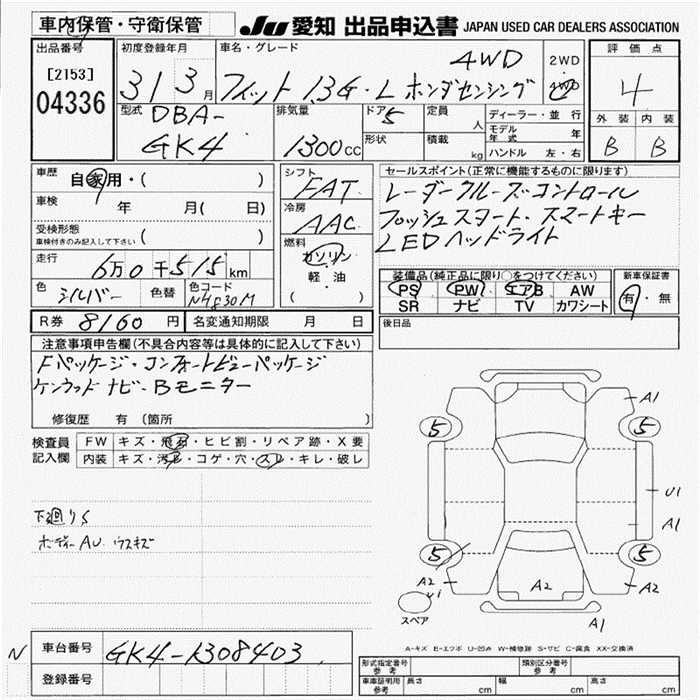 車内保管・守衛保管
JU 愛知 出品申込書 JAPAN USED CAR DEALERS ASSOCIATION
出品番号
[2153]
04336
初度登録年月
31 3月
車名・グレード
4WD
フィット 13G・L ホンダセンシング
2WD
・
4WD
評価点
4
外装 内装
B B
型式
DBA-
GK4
排気量
1300cc
ドア 5
形状
定員 人
積載 kg
ディーラー・並行
モデル年式 年
ハンドル 左・右
車歴 自家用・( )
車検 年 月( 日)
受検形態
車検付きのみ記入して下さい ( )
走行 6万0千515km
色 シルバー 色替 色コード NH830M
シフト
FAT
冷房
AAC
燃料
ガソリン
軽・油
( )
セールスポイント(正常に機能するものに限ります)
レーダークルーズコントロール
プッシュスタート・スマートキー
LEDヘッドライト
装備品(純正品に限り○をつけてください)
PS PW エアB AW
SR ナビ TV カワシート
新車保証書
有・無
R券 8160円 名変通知期限 月 日
後日品
注意事項申告欄(不具合内容等は具体的に記入して下さい)
Fパッケージ・コンフォートビューパッケージ
ケンウッド ナビ・Bモニター
修復歴 有 (箇所 )
検査員
記入欄
FW キズ・飛石・ヒビ割・リペア跡・X要
内装 キズ・汚れ・コゲ・穴・スレ・キレ・破レ
下廻りS
ボディーAU ウスキズ
A1
5 5
U1
A1
5 5
A2
U1
A2
A2
A1
スペア
A-キズ E-エクボ U-凹み W-補修跡 S-サビ C-腐食 XX-交換済
N
車台番号 GK4-1308403
登録番号
形式指定番号
参考
類別区分番号
参考
車庫証明用
参考
長さ cm 幅 cm 高さ cm